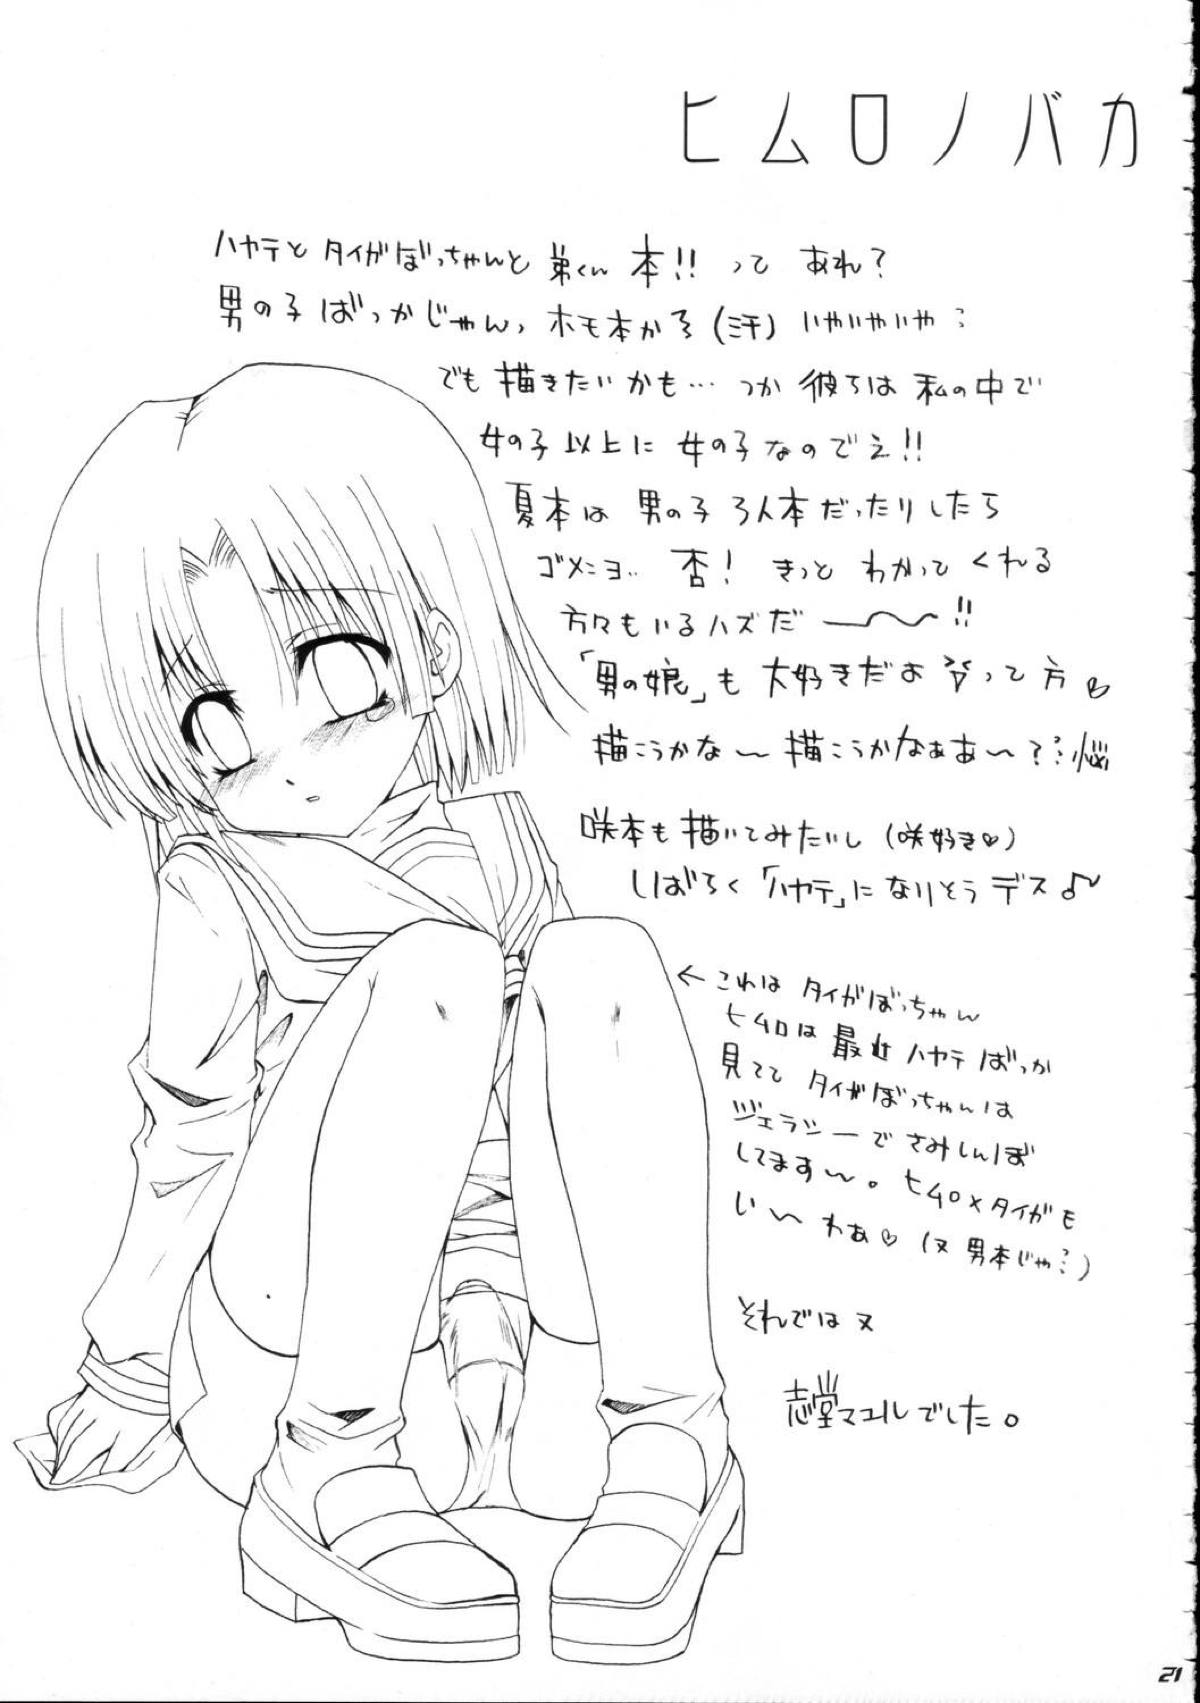 ヒムロノバカ
ハヤテと タイガぼっちゃんと 弟くん 本!! って あれ?
男の子 ばっかじゃんっ ホモ本かよ (汗) いやいやいや…
でも 描きたいかも… つか 彼らは 私の中で
女の子以上に 女の子なのでえ!!
夏本は 男の子3人本だったりしたら
ゴメンヨ… 杏! きっと わかってくれる
方々もいるハズだ ―〜〜!!
「男の娘」も 大好きだよって方♡
描こうかな〜 描こうかなぁあ〜?…悩
咲本も描いてみたいし (咲好き♡)
しばらく「ハヤテ」になりそうデス♪
← これは タイガぼっちゃん
ヒムロは 最近 ハヤテばっか
見てて タイガぼっちゃんは
ジェラシーで さみしんぼ
してます〜。ヒムロ×タイガも
い〜わぁ♡ (又 男本じゃ…)
それでは又
志堂マユルでした。
21